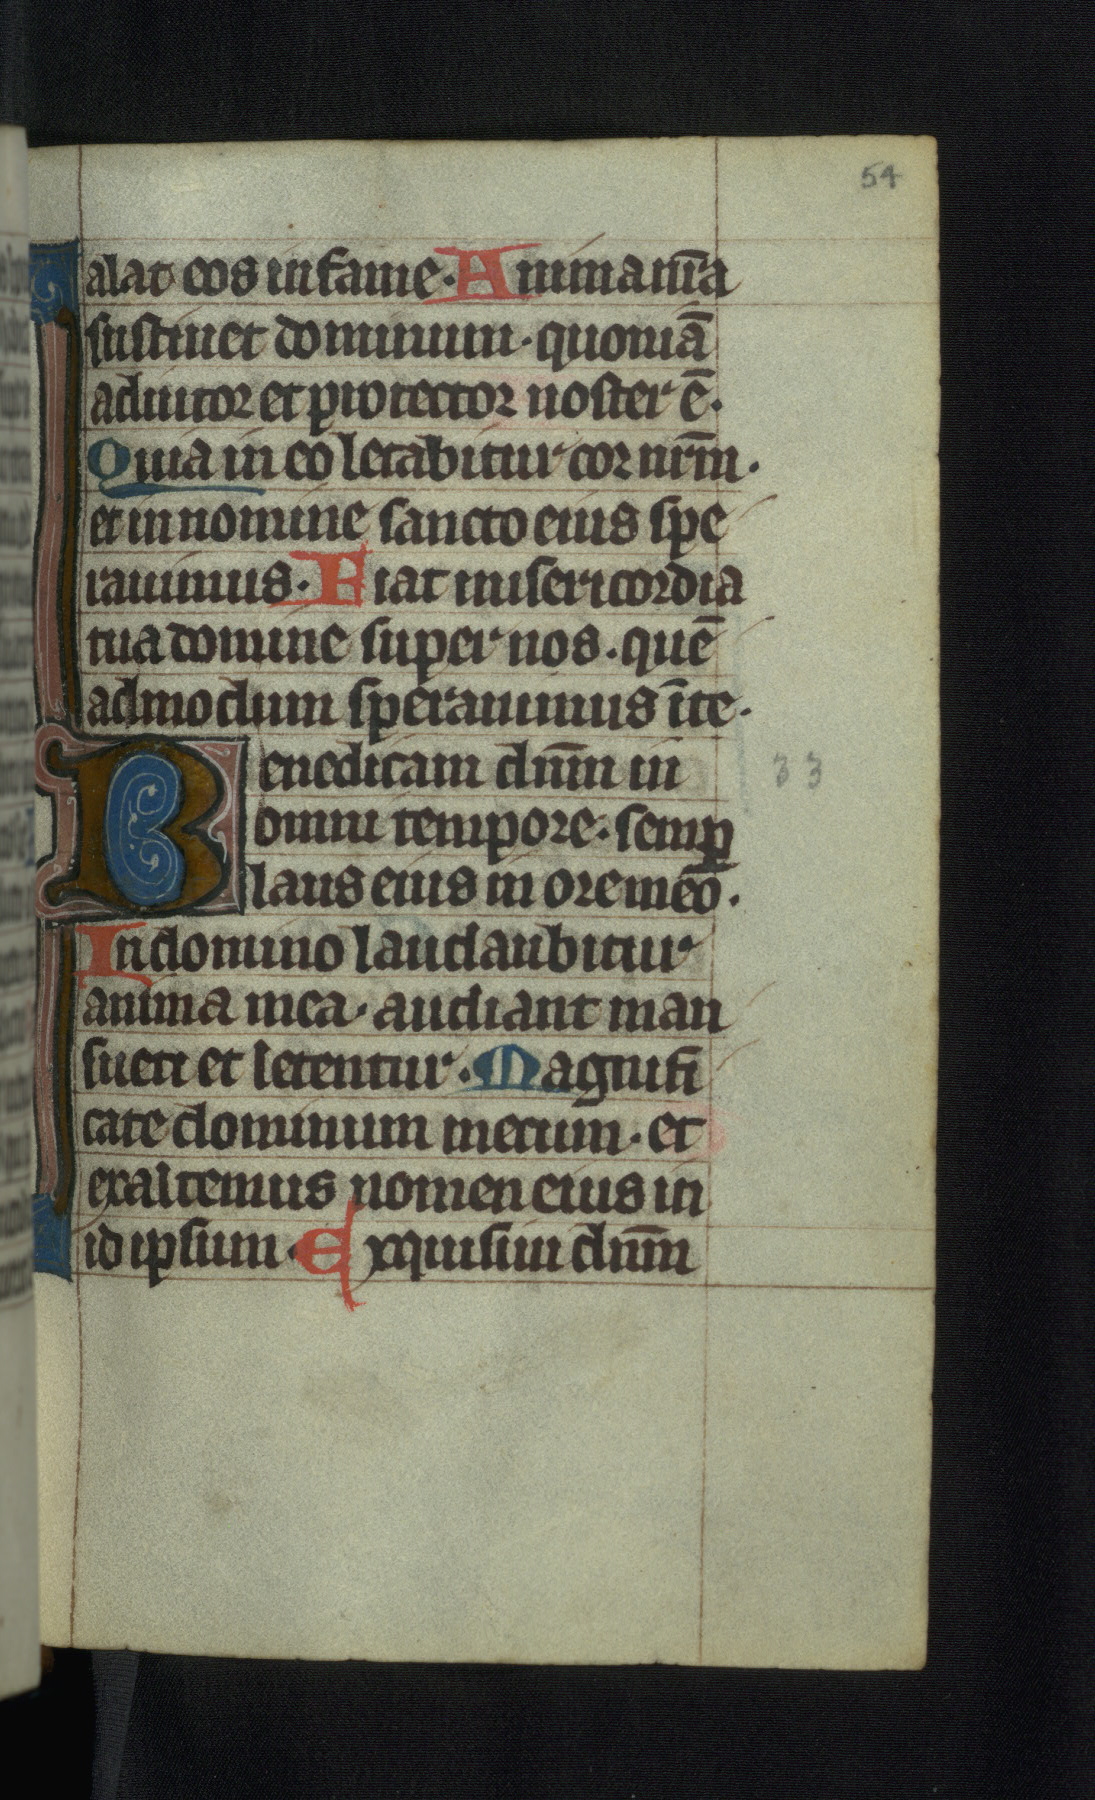 54
alat eos in fame. Anima nr̄a
sustinet dominum. quoniā
adiutor et protector noster ē.
Quia in eo letabitur cor nrm̄.
et in nomine sancto eius spe
rauimus. Fiat misericordia
tua domine super nos. quē
admodum sperauimus ī te.
Benedicam dnm̄ in
33
omni tempore. semꝑ
laus eius in ore meo.
In domino laudaubitur
anima mea. audiant man
sueti et letentur. Magnifi
cate dominum mecum. et
exaltemus nomen eius in
id ipsum. Exquisiui dnm̄